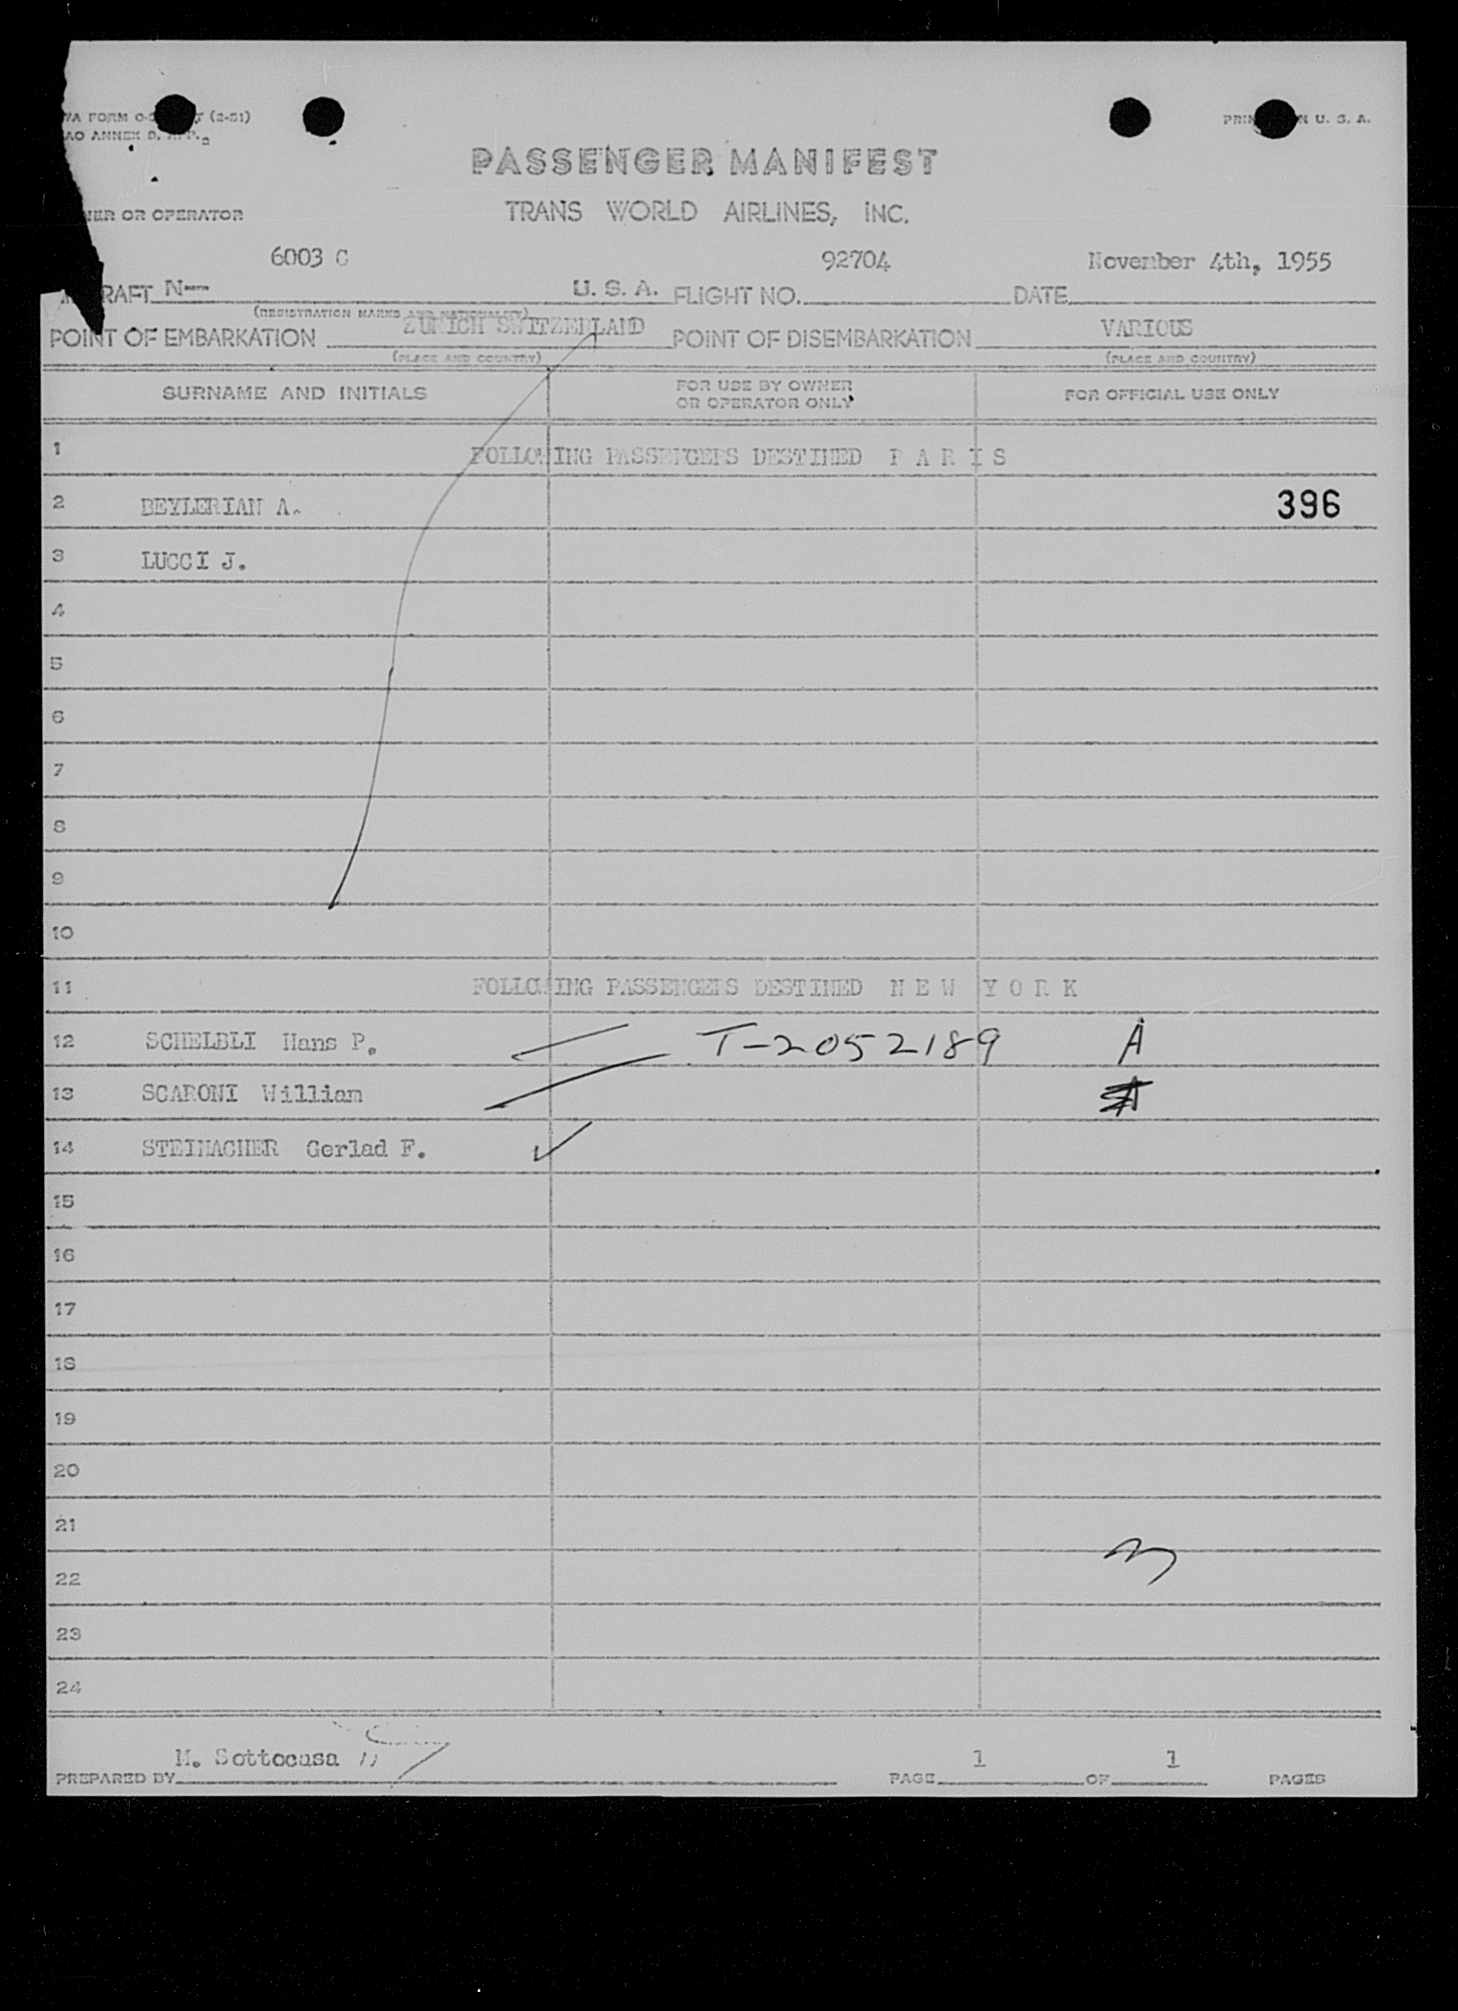 WA FORM O- (2-51)
AO ANNEX
PRIN N U. S. A.
PASSENGER MANIFEST
NER OR OPERATOR
TRANS WORLD AIRLINES, INC.
6003 C 92704 November 4th, 1955
RAFT N-- U. S. A. FLIGHT NO. DATE
(REGISTRATION MARKS AND NATIONALITY)
ZURICH SWITZERLAND VARIOUS
POINT OF EMBARKATION POINT OF DISEMBARKATION
(PLACE AND COUNTRY) (PLACE AND COUNTRY)
SURNAME AND INITIALS FOR USE BY OWNER OR OPERATOR ONLY FOR OFFICIAL USE ONLY
1 FOLLOWING PASSENGERS DESTINED P A R I S
2 BEYLERIAN A. 396
3 LUCCI J.
4
5
6
7
8
9
10
11 FOLLOWING PASSENGERS DESTINED N E W Y O R K
12 SCHELBLI Hans P. T-2052189 A
13 SCARONI William
14 STEINACHER Gerlad F.
15
16
17
18
19
20
21
22
23
24
M. Sottocasa 1 1
PREPARED BY PAGE OF PAGES